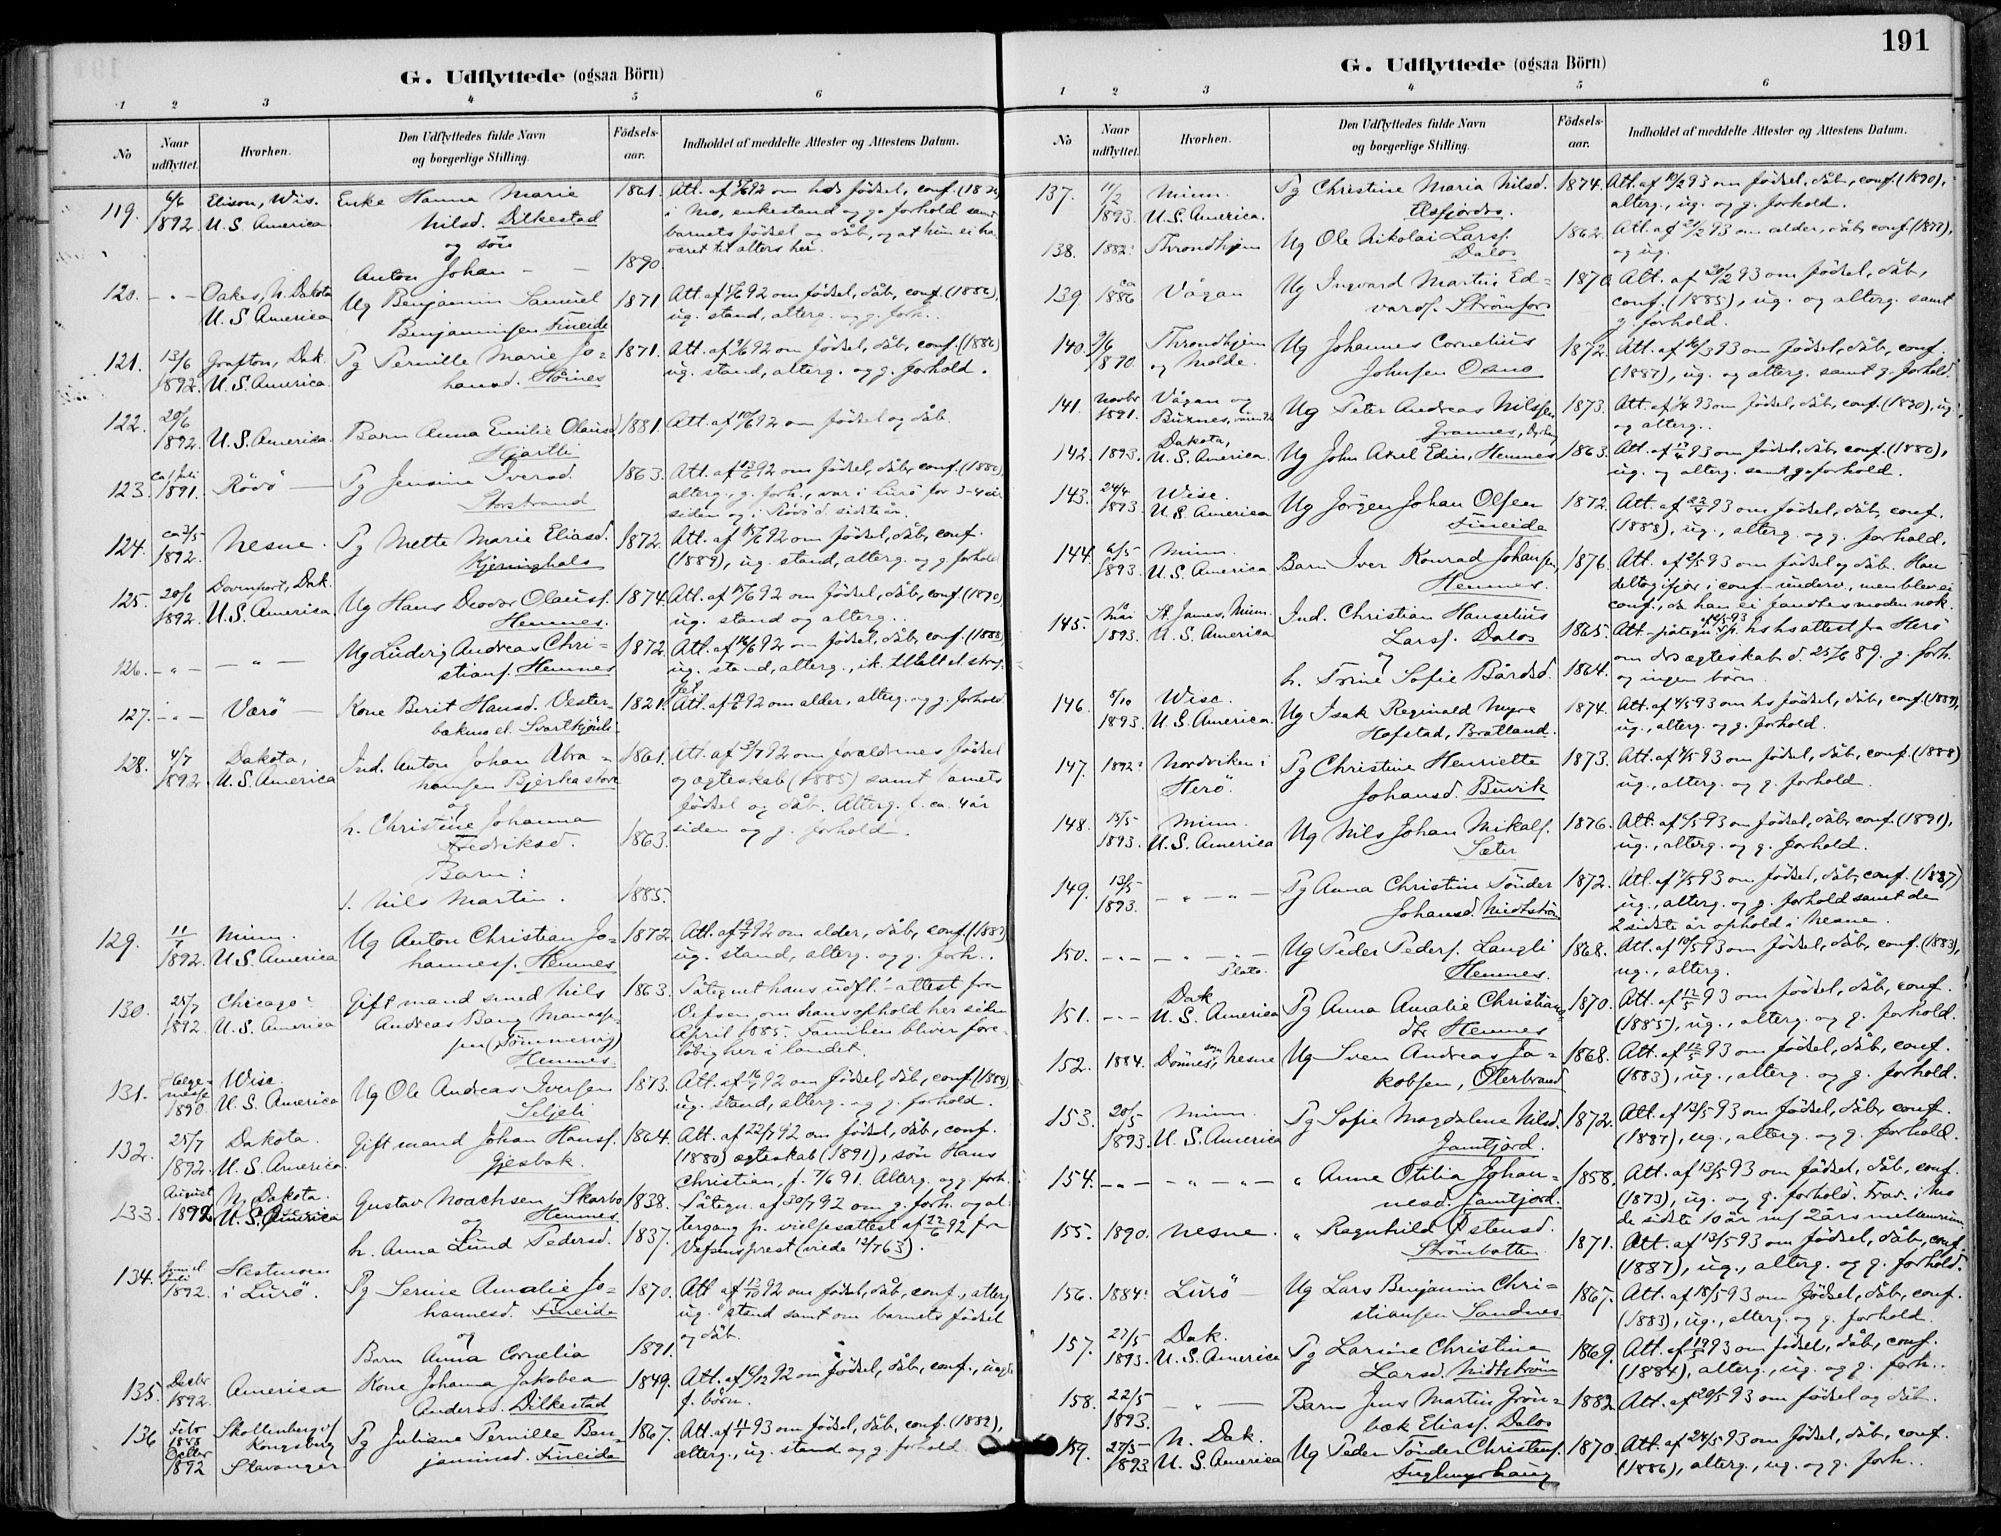 191
G. Udflyttede (ogsaa Börn)
1 2 3 4 5 6
No
Naar udflyttet.
Hvorhen.
Den Udflyttedes fulde Navn og borgerlige Stilling.
Födsels-aar.
Indholdet af meddelte Attester og Attestens Datum.
119. 6/6 Elison, Wis. Enke Hanna Marie 1861. Att. af 92 om hds födsel, conf.
1892 U.S. America Nilsd. Dilkestad i Mo, enkestand og g. forhold samt
og sön barnets födsel og dåb, og at hun ei har
Anton Johan – – 1890. været til alters her.
120. – " – Oakes, N. Dakota Ug Benjamin Samuel 1871 Att. af 92 om födsel, dåb, conf. (1886),
U.S. America Benjaminsen Fineide ug. stand, alterg. og g. forh.
121. 13/6 Grafton, Dak. Pg Pernille Marie Jo= 1871. Att. af 92 om födsel, dåb, conf. (1886)
1892. U.S. America hansd. ug. stand, alterg. og g. forhold.
122. 20/6 Barn Anna Emilie Olausd 1881. Att. af 92 om födsel og dåb.
1892. U.S. America
123. ca 1 Juli 1891. Rödö – Pg Jensine Iversd. 1863. Att. af 13/6 92 om födsel, dåb, conf. (1880)
Storstrand alterg., g. forh., var i Lurö for 3-4 år
siden og i Rödö d. sidste år.
124. ca 3/5 1892. Nesne. Pg Mette Marie Eliasd. 1872. Att. af 92 om födsel, dåb, conf.
Kjeringhals (1889), ug. stand, alterg. og g. forhold
125. 20/6 Davenport, Dak. Ug Hans Olausf. 1874. Att. af 92 om födsel, dåb, conf. (1890)
1892. U.S. America Hemnes. ug. stand og alterg..
126. – " – – " – Ug Ludvig Andreas Chri= 1872. Att. af 92 om födsel, dåb, conf. (1888)
stianf. Hemnes ug. stand, alterg.,
127. – " – Værö – Kone Berit Hansd. Vester- 1821. Att. af 92 om alder, alterg. og g. forhold
bakmoel.
128. 4/7 Dakota, Ind. Anton Johan Abra= 1861. Att. af 2/7 92 om forældrenes födsel
1892. U.S. America hamsen Bjerkastore og ægteskab (1885) samt barnets
og födsel og dåb. Alterg. f. ca. 4 år
h. Christine Johanna 1863. siden og g. forhold.
Fredriksd.
Barn:
1. Nils Martin. 1885.
129. 11/7 Minn. Ug Anton Christian Jo= 1872 Att. af 92 om alder, dåb, conf. (1887)
1892. U.S. America hannesf. Hemnes ug. stand, alterg. og g. forh..
130. 25/7 Chicago: Gift mand smed Nils 1863. Påtegnet hans udfl.-attest fra
1892. U.S. America Andreas Bang Manasse- Vefsen, om hans ophold her siden
sen (Tömmervig) April 1885. Familien bliver fore-
Hemnes löbig her i landet.
131. Helge-messe 1890 Wisc. Ug Ole Andreas Iversen 1873. Att. af 16/7 92 om födsel, dåb, conf. (1889)
U.S. America Seljeli ug. stand, alterg. og g. forhold.
132. 25/7 Dakota. Gift mand Johan Hansf. 1864. Att. af 22/7 92 om födsel, dåb, conf.
1892. U.S. America Gjesbak. (1880) ægteskab (1891), sön Hans
Christian, f. 7/6 91. Alterg. og g. forh.
133. August 1892 N. Dakota. Gustav Noachsen Skarbo 1838. Påtegn. af 30/7 92 om g. forh. og al-
U.S. America og Hemnes tergang p. vielsesattest af 22/6 92 fra
h. Anna Lund Pedersd. 1837. Vefsens prest (viede 12/7 63).
134. Juni el. Juli 1892. Hestmoen Pg Serine Amalie Jo- 1870. Att. af 12/10 92 om födsel, dåb, conf., alterg.
i Lurö. hannesd. Fineide ug. stand samt om barnets födsel
og og dåb.
Barn Anna Cornelia 1891.
135. Decbr 1892. America Kone Johanna Jakobea 1849. Att. af 92 om födsel, dåb, conf.,
Andersd. Dilkestad f. börn.
136 Febr 1888 Skollenberg v/ Kongsberg Pg Juliane Pernille Ben- 1867. Att. af 93 om födsel, dåb, conf. (1882),
Octbr 1892 Stavanger jaminsd. Fineide alterg., ug. stand og g. forhold.
G. Udflyttede (ogsaa Börn)
1 2 3 4 5 6
No
Naar udflyttet.
Hvorhen.
Den Udflyttedes fulde Navn og borgerlige Stilling.
Födsels-aar.
Indholdet af meddelte Attester og Attestens Datum.
137. 11/2 Minn. Pg Christine Maria Nilsd. 1874. Att. af 10/2 93 om födsel, dåb, conf. (1890),
1893. U.S. America. Elsfjordro. alterg., ug. og g. forhold.
138. 1882: Throndhjem Ug Ole Nikolai Larsf. 1862. Att. af 93 om alder, dåb, conf. (1877),
Dalos og ug.
139 ca 1886 Vågan Ug Ingvard Martin Ed= 1870. Att. af 20/2 93 om födsel, dåb,
vardf. Strömfors conf. (1885), ug. og alterg. samt
g. forhold.
140. 9/6 Throndhjem Ug Johannes Cornelius 1872. Att. af 93 om födsel, dåb, conf.
1890. og Molde. Johnsen Osmo (1887), ug. og alterg. samt g. forhold.
141. Novbr 1891. Vågan og Buxnes, Ug Peter Andreas Nilsen 1873. Att. af 93 om födsel, dåb, conf. (1890), ug.
Grannes, og alterg..
142. 1893. Dakota, U.S. America Ug John Axel Edin, Hemnes 1863. Att. af 93 om födsel, dåb, conf. (1880),
ug. og alterg. samt g. forhold.
143. 24/4 Wisc. Ug Jörgen Johan Olsen 1872. Att. af 22/4 93 om födsel, dåb, conf.
1893. U.S. America Fineide (1888), ug., alterg. og g. forhold.
144. 6/5 Minn. Barn Iver Konrad Johansen, 1876. Att. af 2/5 93 om födsel og dåb. Han
1893. U.S. America Hemnes. deltog ifjor i conf.-underv., men blev ei
conf., da han ei fandtes moden nok.
145. ca Mai 1893. St. James, Minn. Ind. Christian Hanselius 1865. Att.-påtegn. p. hs hs attest fra Herö
U.S. America Larsf. Dalos om drs ægteskab d. 25/6 89. g. forh.
og h. Trine Sofie Bårdsd. 1864. og ingen börn.
146. 8/10 Wisc. Ug Isak Reginald Myre 1874. Att. af 4/5 93 om hs födsel, dåb, conf. (1889),
1893. U.S. America. Hofstad, Bratland. ug., alterg. og g. forhold.
147. 1892: Nordviken i Pg Christine Henriette 1873. Att. af 93 om födsel, dåb, conf. (1888)
Herö. Johansd. Buvik ug., alterg. og g. forhold.
148. 13/5 Minn. Ug Nils Johan Mikalf. 1876. Att. af 93 om födsel, dåb, conf. (1891),
1893. U.S. America Sæter ug., alterg. og g. forhold.
149. 13/5 1893. – " – " – Pg Anna Christine Tönder 1872. Att. af 93 om födsel, dåb, conf. (1887)
Johansd. Midtström ug., alterg. og g. forhold samt de
2 sidste år ophold i Nesne.
150. – " – – " – " – Ug Peder Pedersf. Langli 1868. Att. af 10/5 93 om födsel, dåb, conf. (1883),
Hemnes. ug., alterg.
151. – " – Dak. U.S. America Pg Anna Amalie Christians= 1870. Att. af 12/5 93 om födsel, dåb, conf.
dtr Hemnes (1885), ug., alterg. og g. forhold.
152. 1884. Dönnes, Nesne Ug Sven Andreas Ja= 1868. Att. af 12/5 93 om födsel, dåb, conf.
kobsen, Oterbrand (1883), ug., alterg. og g. forhold.
153. 20/5 Minn. Pg Sofie Magdalene Nilsd. 1872. Att. af 12/5 93 om födsel, dåb, conf.
1893. U.S. America Jamtjord. (1887), ug., alterg. og g. forhold.
154. – " – – " – " – " Anne Otilia Johan= 1858. Att. af 13/5 93 om födsel, dåb, conf.
nesd. Jamtjord. (1873), ug. og g. forhold. Frav. i Mo
de sidste 10 år m/ 2 års mellemrum.
155. 1890. Nesne. " Ragnhild Östensd. 1871. Att. af 13/5 93 om födsel, dåb, conf.
Strömbotten (1887), ug., alterg. og g. forhold.
156. 1884: Lurö – Ug Lars Benjamin Chri= 1867. Att. af 18/5 93 om födsel, dåb, conf.
stiansen Sandnes (1883), ug., alterg. og g. forhold.
157. 27/5 Dak. Pg Larine Christine 1869. Att. af 93 om födsel, dåb, conf.
1893. U.S. America Larsd. Midtström (1884), alterg., ug. og g. forh..
158. 22/5 1893. – " – Barn Jens Martin Grön= 1882 Att. af 20/5 93 om födsel og dåb.
bæk Eliasf. Dalos
159. 27/5 N. Dak. Ug Peder Tönder Christensf. 1870. Att. af 24/5 93 om födsel, dåb, conf.
1893 U.S. America (1886), alterg., ug. og g. forh..